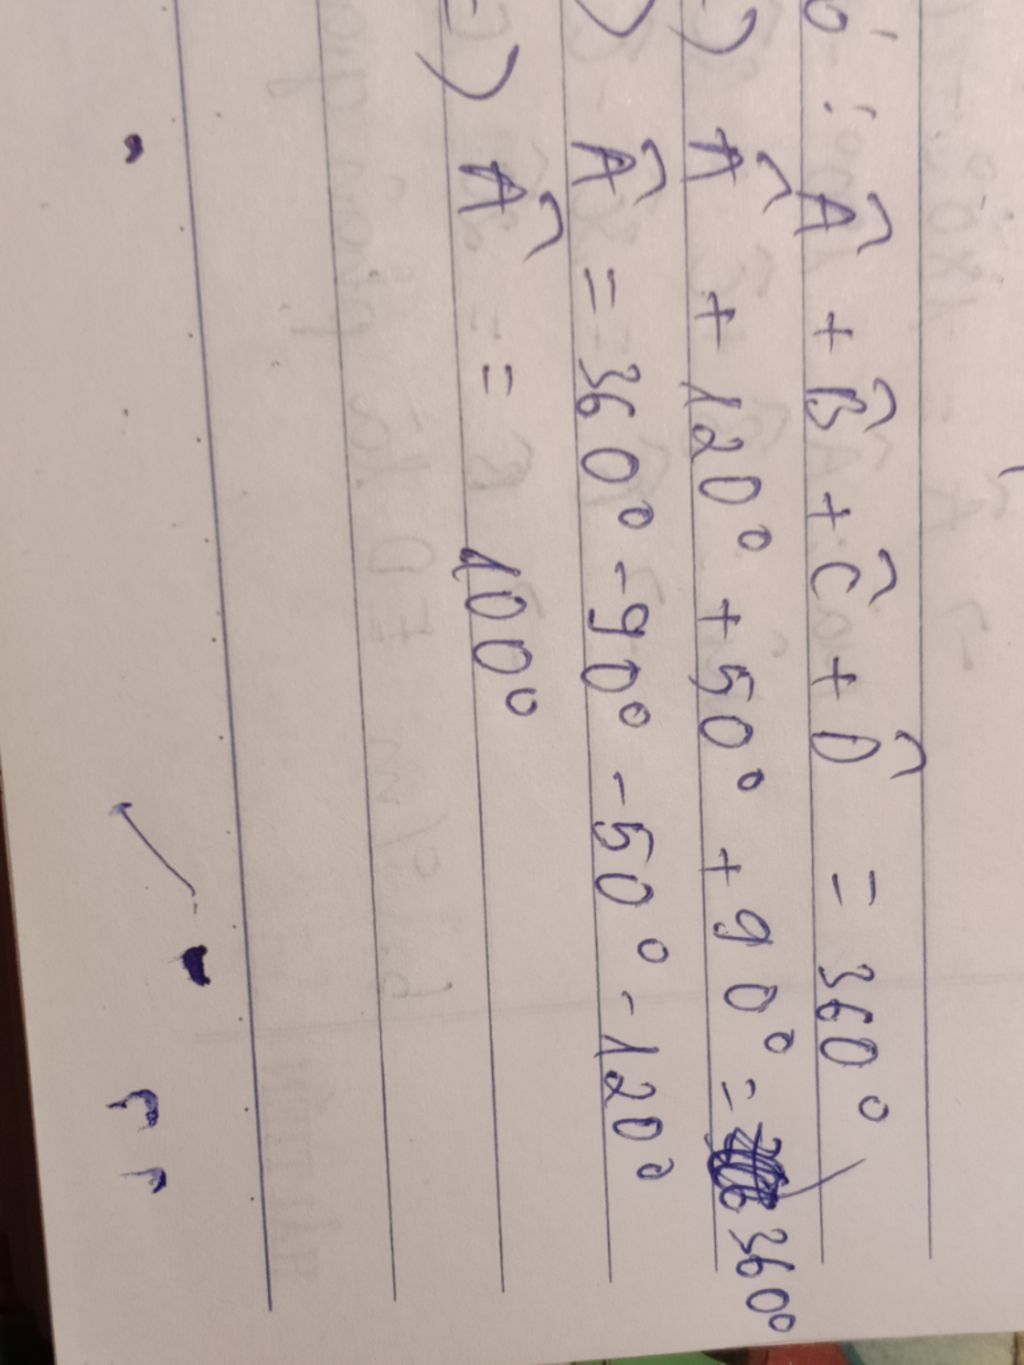 ó: Â + B̂ + Ĉ + D̂ = 360°
=) Â + 120° + 50° + 90° = 360°
=) Â = 360° - 90° - 50° - 120°
=) Â = 100°